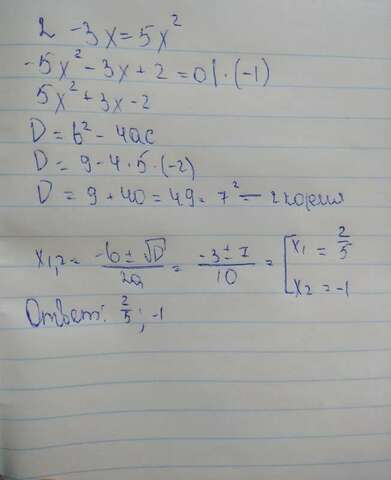 2 - 3x = 5x²
-5x² - 3x + 2 = 0 | · (-1)
5x² + 3x - 2
D = b² - 4ac
D = 9 - 4 · 5 · (-2)
D = 9 + 40 = 49 = 7² — 2 корня
x₁,₂ = (-b ± √D)/(2a) = (-3 ± 7)/10 = [ x₁ = 2/5
x₂ = -1
Ответ: 2/5 ; -1